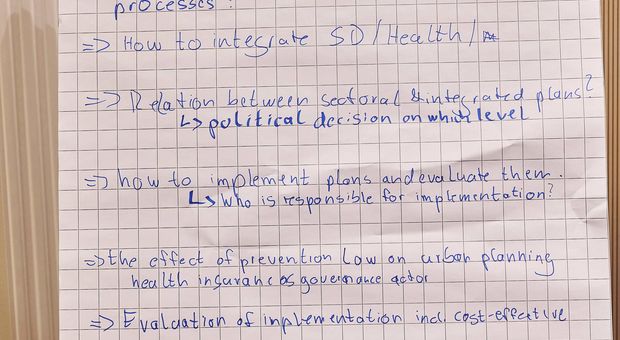 processes?
=> How to integrate SD/Health/
=> Relation between sectoral & integrated plans?
↳ political decision on which level
=> how to implement plans and evaluate them.
↳ who is responsible for implementation?
=> the effect of prevention Low on urban planning
health insurances governance actor
=> Evaluation of implementation incl. cost-effective